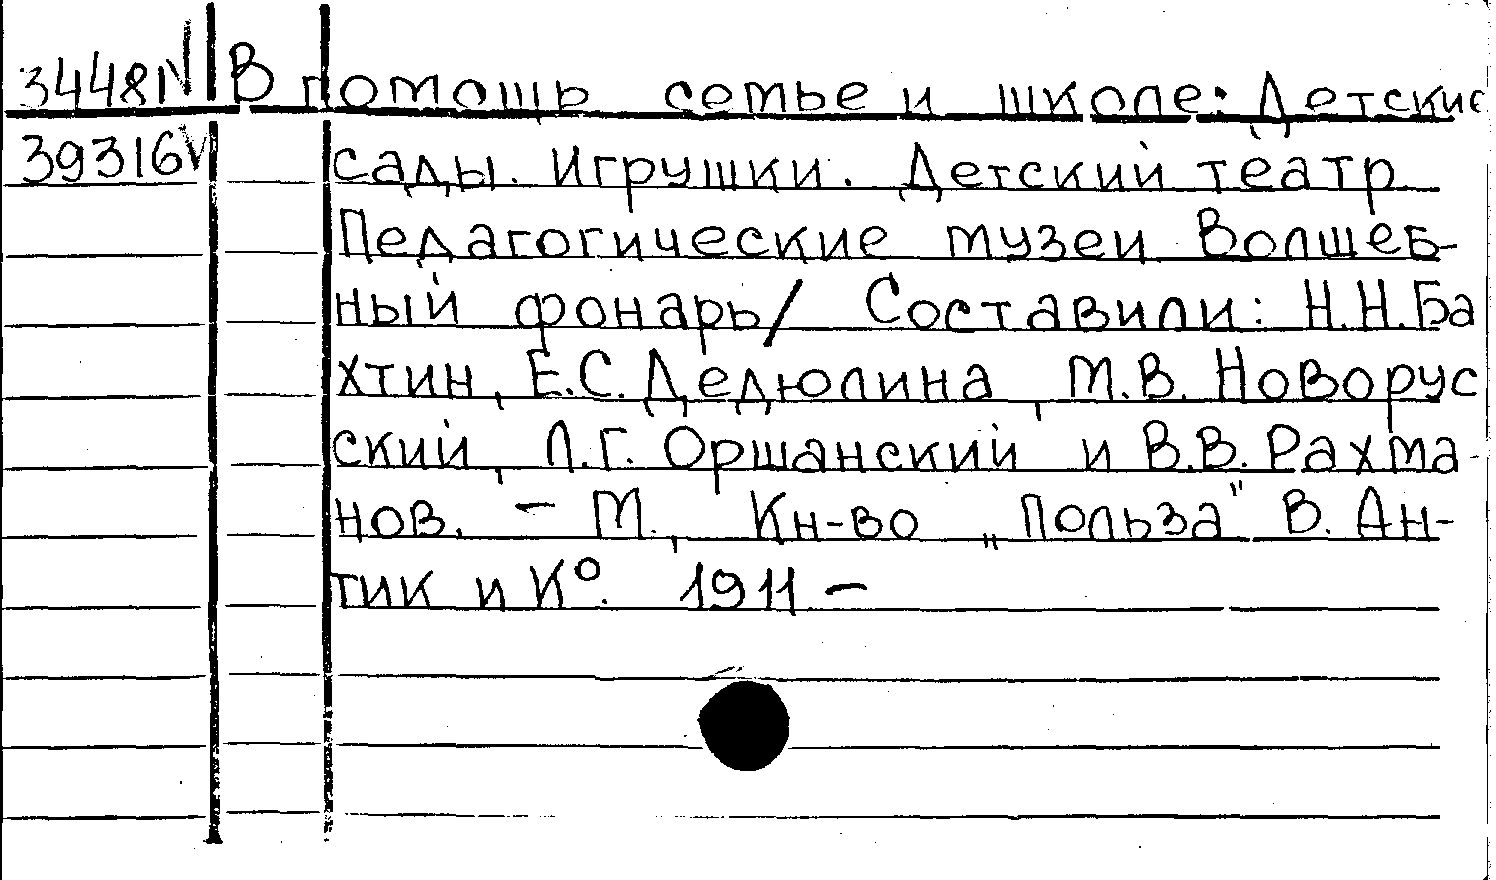 3448N В помощь семье и школе: Детские
39316V сады. Игрушки. Детский театр
Педагогические музеи. Волшеб-
ный фонарь/ Составили: Н.Н.Ба
хтин, Е.С.Дедюлина, М.В. Новорус
ский, Л.Г. Оршанский и В.В.Рахма-
нов. - М., Кн-во „Польза" В. Ан-
тик и К°. 1911 -